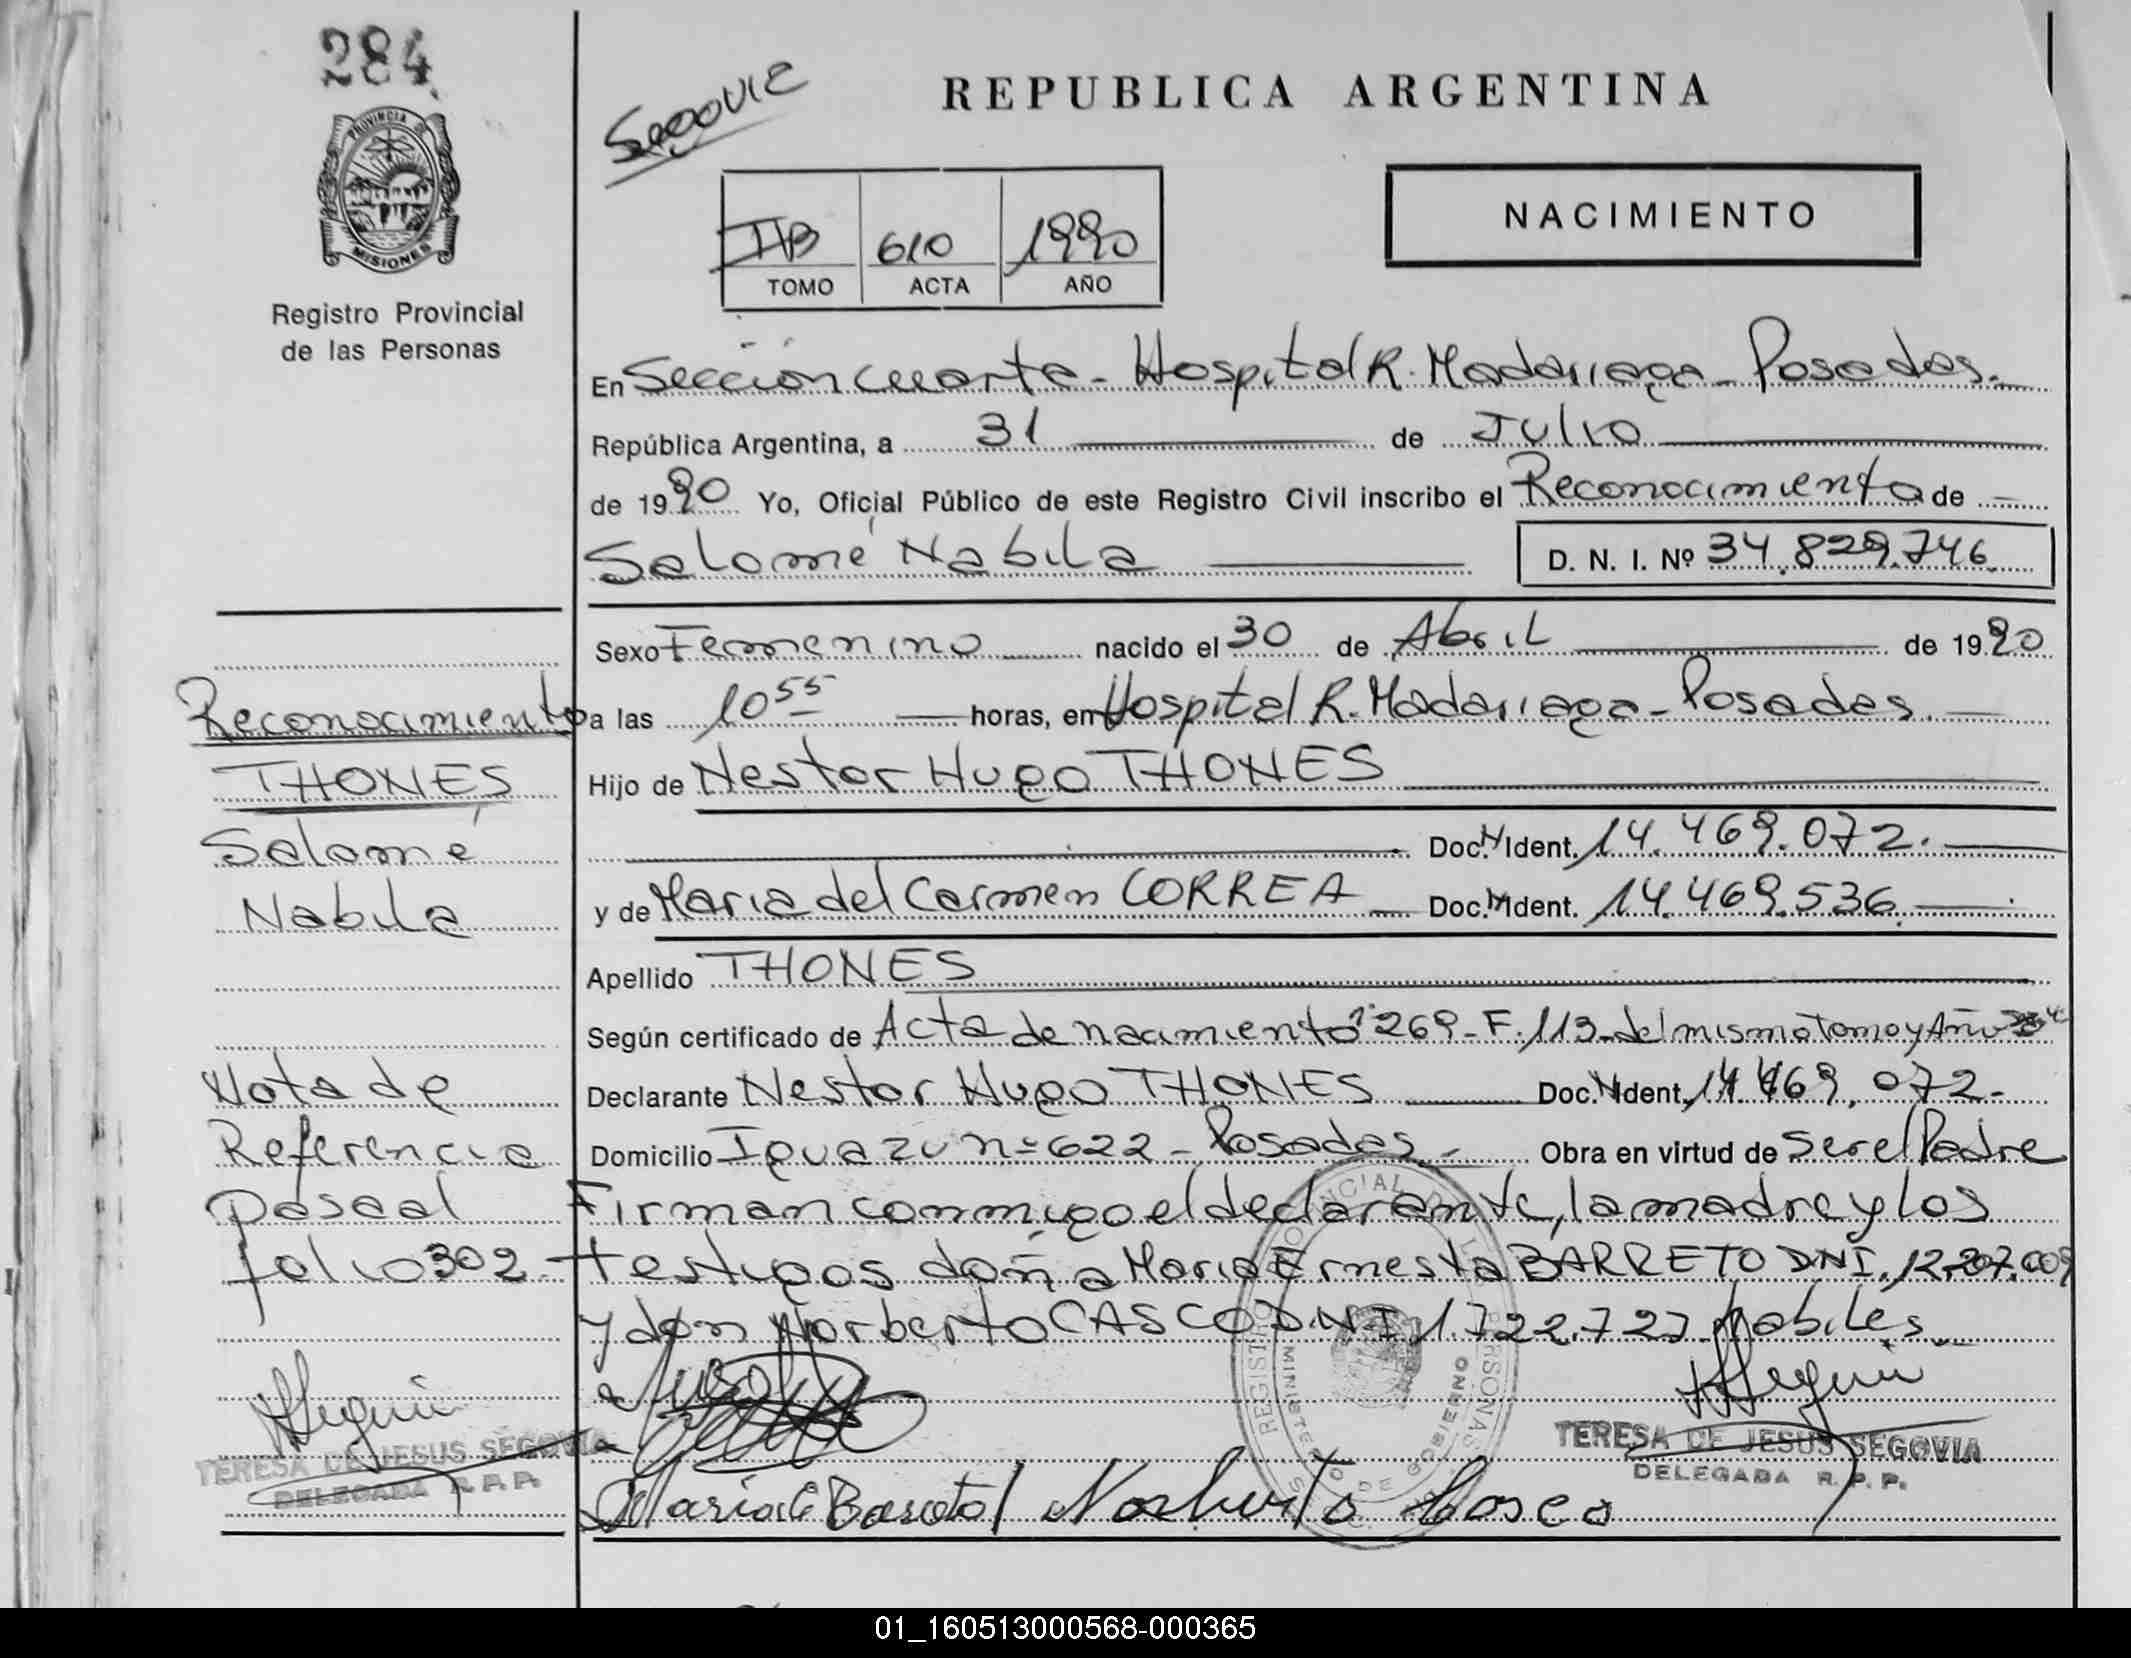 284
Segovia
REPUBLICA ARGENTINA
PROVINCIA DE
MISIONES
Registro Provincial
de las Personas
IIB 610 1990
TOMO ACTA AÑO
NACIMIENTO
En Sección cuarta - Hospital R. Madariaga - Posadas.
República Argentina, a 31 de Julio
de 1990 Yo, Oficial Público de este Registro Civil inscribo el Reconocimiento de
Salomé Nabila D. N. I. Nº 34.829.746
Sexo Femenino nacido el 30 de Abril de 1990
a las 10 55 horas, en Hospital R. Madariaga - Posadas.
Hijo de Nestor Hugo THONES
Doc. N Ident. 14.469.072.
y de Maria del Carmen CORREA Doc. N Ident. 14.469.536.
Apellido THONES
Según certificado de Acta de nacimiento 1269 - F. 113 - del mismo Tomo y Año
Declarante Nestor Hugo THONES Doc. N Ident. 14.469.072-
Domicilio Iguazu nº 622 - Posadas - Obra en virtud de ser el Padre
Firman conmigo el declarante, la madre y los
testigos doña Maria Ernesta BARRETO DNI. 12.207.009
y don Norberto CASCO D.N.I 1.722.727 habiles
Reconocimiento
THONES
Salomé
Nabila
Nota de
Referencia
pasa al
folio 302 -
TERESA DE JESUS SEGOVIA
DELEGADA R. P. P.
Maria E Barreto Norberto Casco
REGISTRO PROVINCIAL DE LAS PERSONAS
MINISTERIO DE GOBIERNO
TERESA DE JESUS SEGOVIA
DELEGADA R. P. P.
01_160513000568-000365